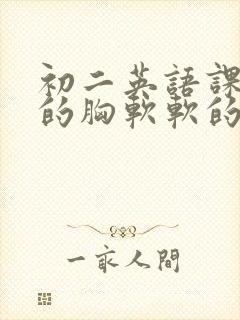 初二英語課
的胸軟軟的
一家人間